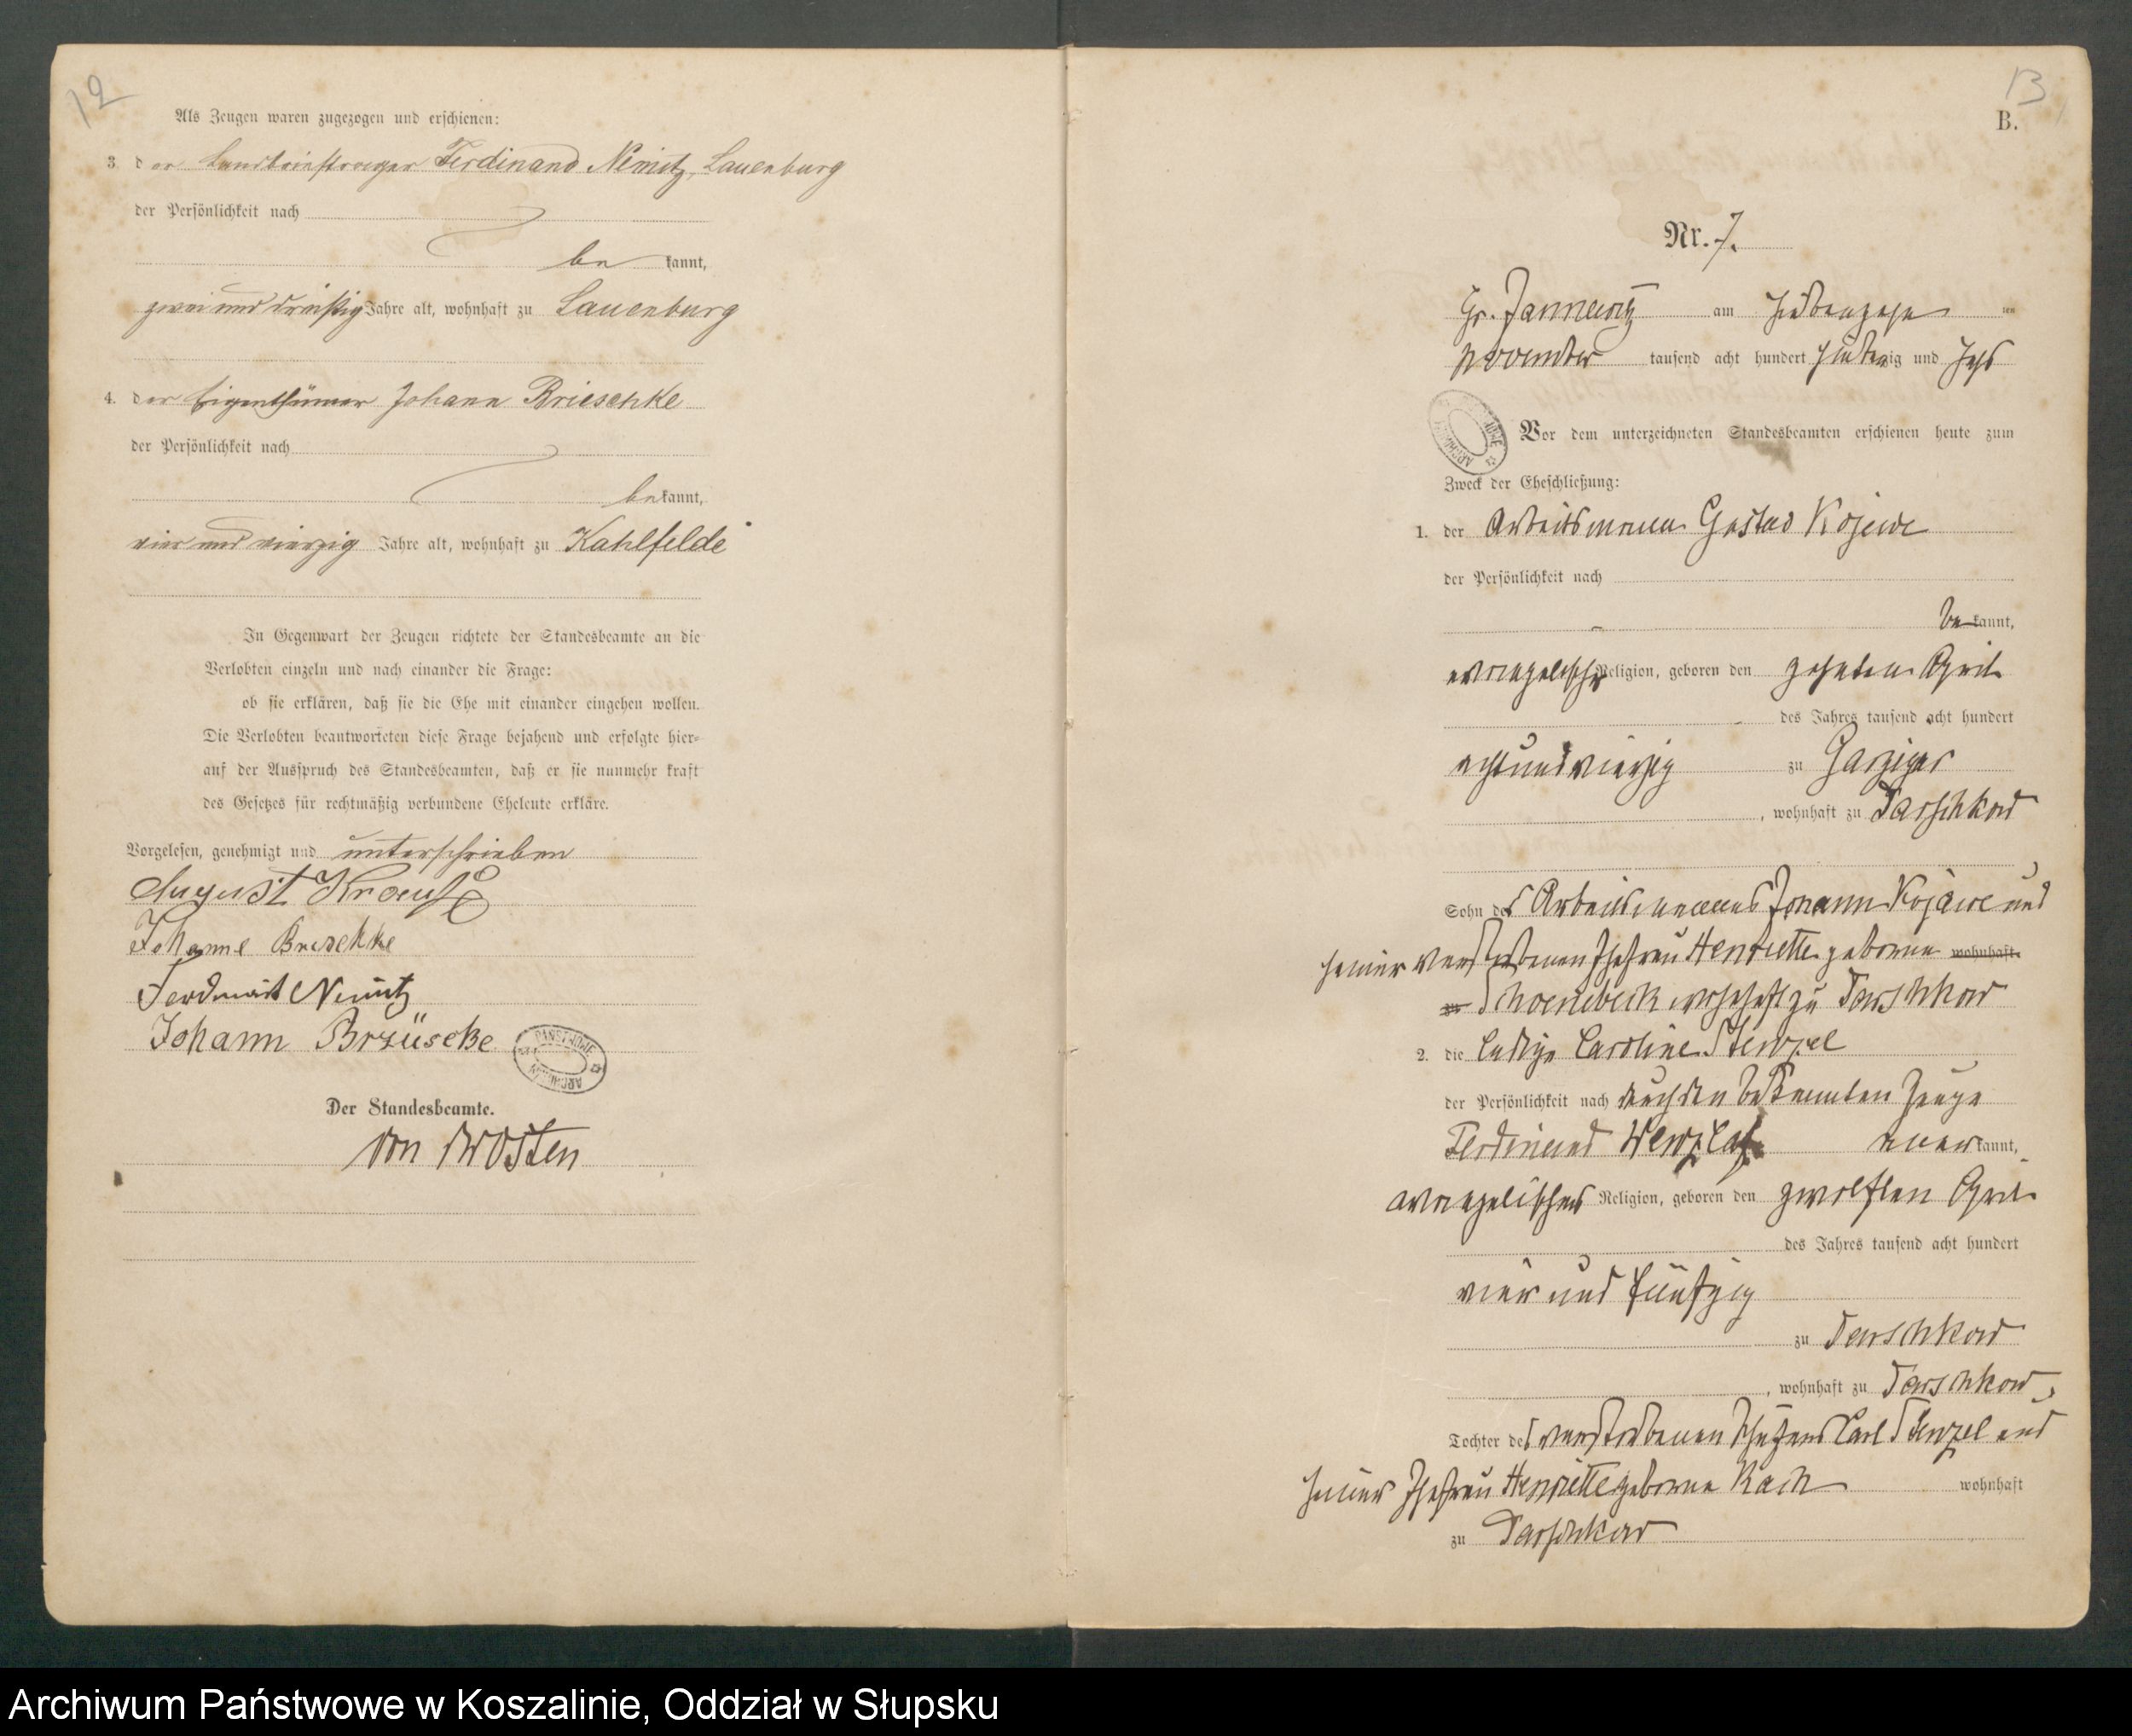 12
Als Zeugen waren zugezogen und erschienen:
3. der Ferdinand Nemitz, Lauenburg
der Persönlichkeit nach
be kannt,
zwei und dreißig Jahre alt, wohnhaft zu Lauenburg
4. der Eigenthümer Johann Brieschke
der Persönlichkeit nach
bekannt,
vier und vierzig Jahre alt, wohnhaft zu Kahlfelde
In Gegenwart der Zeugen richtete der Standesbeamte an die
Verlobten einzeln und nach einander die Frage:
ob sie erklären, daß sie die Ehe mit einander eingehen wollen.
Die Verlobten beantworteten diese Frage bejahend und erfolgte hier-
auf der Ausspruch des Standesbeamten, daß er sie nunmehr kraft
des Gesetzes für rechtmäßig verbundene Eheleute erkläre.
Vorgelesen, genehmigt und unterschrieben
August Krause
Johanne
Nemitz
Johann
Der Standesbeamte.
von
13
B.
Nr. 7.
Gr. Jannewitz am siebenzehn ten
November tausend acht hundert siebenzig und sechs
Vor dem unterzeichneten Standesbeamten erschienen heute zum
Zweck der Eheschließung:
1. der Arbeitsmann Gustav Kojewe
der Persönlichkeit nach
be kannt,
evangelischer Religion, geboren den zehnten April
des Jahres tausend acht hundert
acht und vierzig zu Garzigar
, wohnhaft zu Darschkow
Sohn des Arbeitsmannes Johann Kojawe und
seiner verstorbenen Ehefrau Henriette geborene wohnhaft
zu Schoenebeck wohnhaft zu Darschkow
2. die ledige Caroline Stenzel
der Persönlichkeit nach durch den bekannten Zeuge
Ferdinand Wenzlaf anerkannt,
evangelischer Religion, geboren den zwölften April
des Jahres tausend acht hundert
vier und fünfzig
zu Darschkow
, wohnhaft zu Darschkow,
Tochter des verstorbenen Schäfers Carl Stenzel und
seiner Ehefrau Henriette geborene Rach wohnhaft
zu Darschkow
Archiwum Państwowe w Koszalinie, Oddział w Słupsku